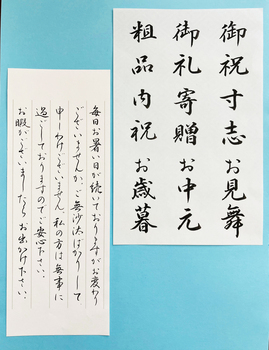 御祝寸志お見舞
御礼寄贈お中元
粗品内祝お歳暮
毎日お暑い日が続いておりますがお変り
ございませんか。ご無沙汰ばかりして
申しわけございません。私の方は無事に
過ごしておりますのでご安心下さい。
お暇がございましたらお出かけ下さい。